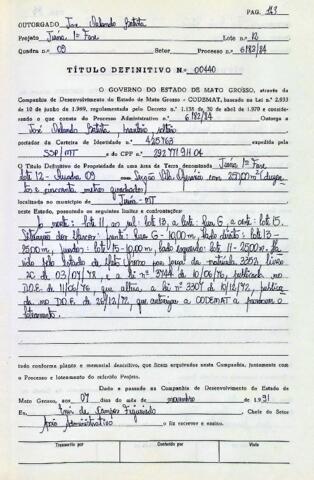 PAG. 143
OUTORGADO José Orlando Batista
Projeto Juína 1ª Fase Lote n.º 12
Quadra n.º 09 Setor Processo n.º 6182/84
TÍTULO DEFINITIVO N.º 00440
O GOVERNO DO ESTADO DE MATO GROSSO, através da
Companhia de Desenvolvimento do Estado de Mato Grosso - CODEMAT, baseado na Lei n.º 2.933
de 10 de junho de 1969, regulamentado pelo Decreto n.º 1.138 de 30 de abril de 1970 e considerando o que consta do Processo Administrativo n.º 6182/84 Outorga a
José Orlando Batista, brasileiro solteiro
portador da Carteira de Identidade n.º 425763 expedida pela
SSP/MT e do CPF n.º 292 777 911 04
O Título Definitivo de Propriedade de uma área de Terra denominada Juína 1ª Fase
lote 12 - Quadra 09 com 250,00 m² (duzentos e cinquenta metros quadrados)
localizada no município de Juína - MT
neste Estado, possuindo os seguintes limites e confrontações:
Ao norte: lote 11, ao sul: lote 13, a leste: Rua G, a oeste: lote 15.
Frente: Rua G - 10,00 m, lado direito: lote 13 -
25,00 m, fundos: lote 15 - 10,00 m, lado esquerdo: lote 11 - 25,00 m,
pelo Estado de Mato Grosso por força da matrícula 3353, livro
2C de 03/07/78, e a lei nº 3744 de 10/06/76, publicada
no D.O.E. de 11/06/76 que altera a lei nº 3307 de 18/12/72, publicada no D.O.E. de 26/12/72, que autoriza a CODEMAT a promover o
loteamento.
tudo conforme planta e memorial descritivo, que ficam arquivados nesta Companhia, juntamente com
o Processo e loteamento do referido Projeto.
Dado e passado na Companhia de Desenvolvimento do Estado de
Mato Grosso, aos 07 dias do mês de novembro de 1.991
Eu, de Campos Figueiredo Chefe do Setor
Apoio Administrativo o fiz escrever e assino.
Transcrito por Conferido por Visto